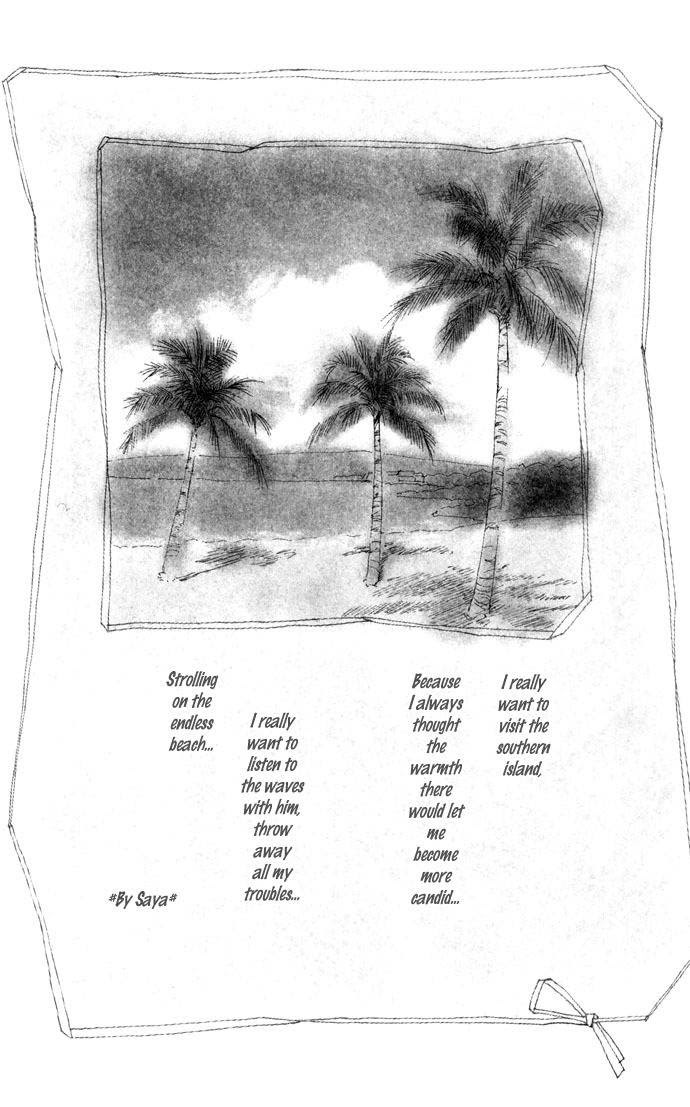 I really
want to
visit the
southern
island,
Because
I always
thought
the
warmth
there
would let
me
become
more
candid...
I really
want to
listen to
the waves
with him,
throw
away
all my
troubles...
Strolling
on the
endless
beach...
*By Saya*